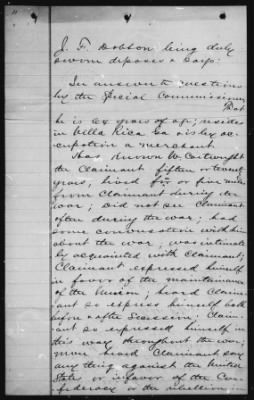 J. F. Dobson being duly
sworn deposes & says:
In answer to questions
by the Special Commissioner
That
he is 48 years of age; resides
in Villa Rica Ga is by oc-
cupation a merchant.
Has known W. Cartwright
the Claimant fifteen or twenty
years, lived four or five miles
from Claimant during the
war; did not see Claimant
often during the war; had
some conversation with him
about the war; was intimate-
ly acquainted with Claimant;
Claimant expressed himself
in favor of the maintainance
of the Union; heard Claim-
ant so express himself both
before & after Secession; Claim-
ant so expressed himself in
this way throughout the war;
never heard Claimant say
any thing against the United
States or in favor of the Con-
federacy or the rebellion